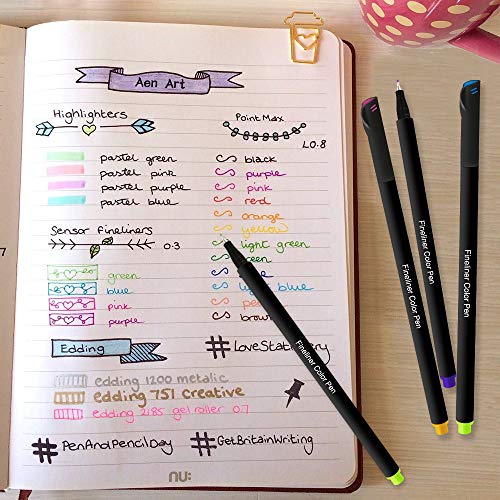 Aen Art
Highlighters
pastel green
pastel pink
pastel purple
pastel blue
Sensor Fineliners
0.3
green
blue
pink
purple
Edding
edding 1200 metalic
edding 751 creative
edding 2185 gel roller 0.7
#PenAndPencilDay
Point Max
L0.8
black
purple
pink
red
orange
yellow
light green
blue
#GetBritainWriting
nu:
7
Fineliner Color Pen
Fineliner Color Pen
Fineliner Color Pen
Fineliner Color Pen